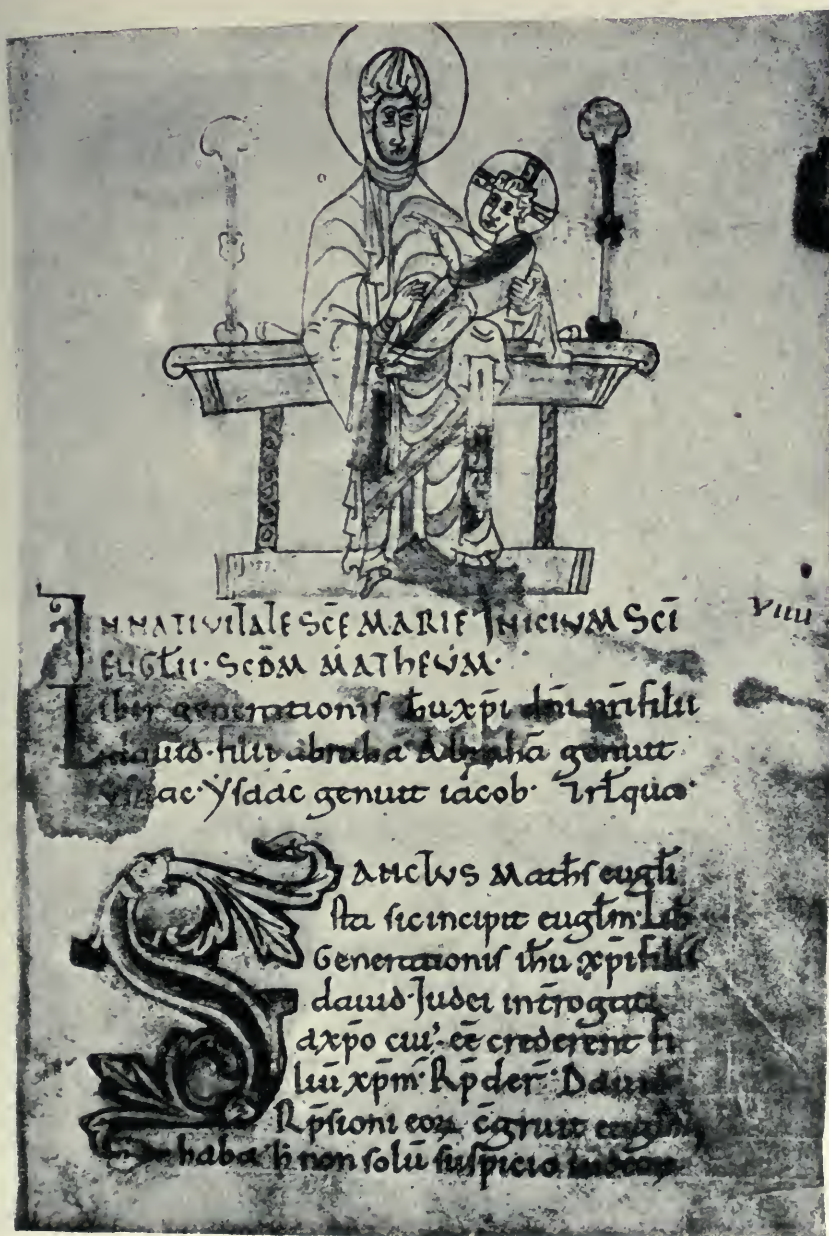 IN NATIVITATE SCE MARIE INICIUM SCI
EUGLII · SCDM MATHEUM ·
Liber generationis ihu xpi dni nri filii
dauid · filii abraha Abraha genuit
ysaac · Ysaac genuit iacob · 7 rlqua ·
SANCTUS Maths eugli
sta sic incipit euglm · Lib
Generationis ihu xpi filii
dauid · Iudei introgati
a xpo cui' ee crederent fi
liu xpm · Rpder · Dauid
Rpsioni eor cgruit euglm
haba h non solu suspicio
VIIII